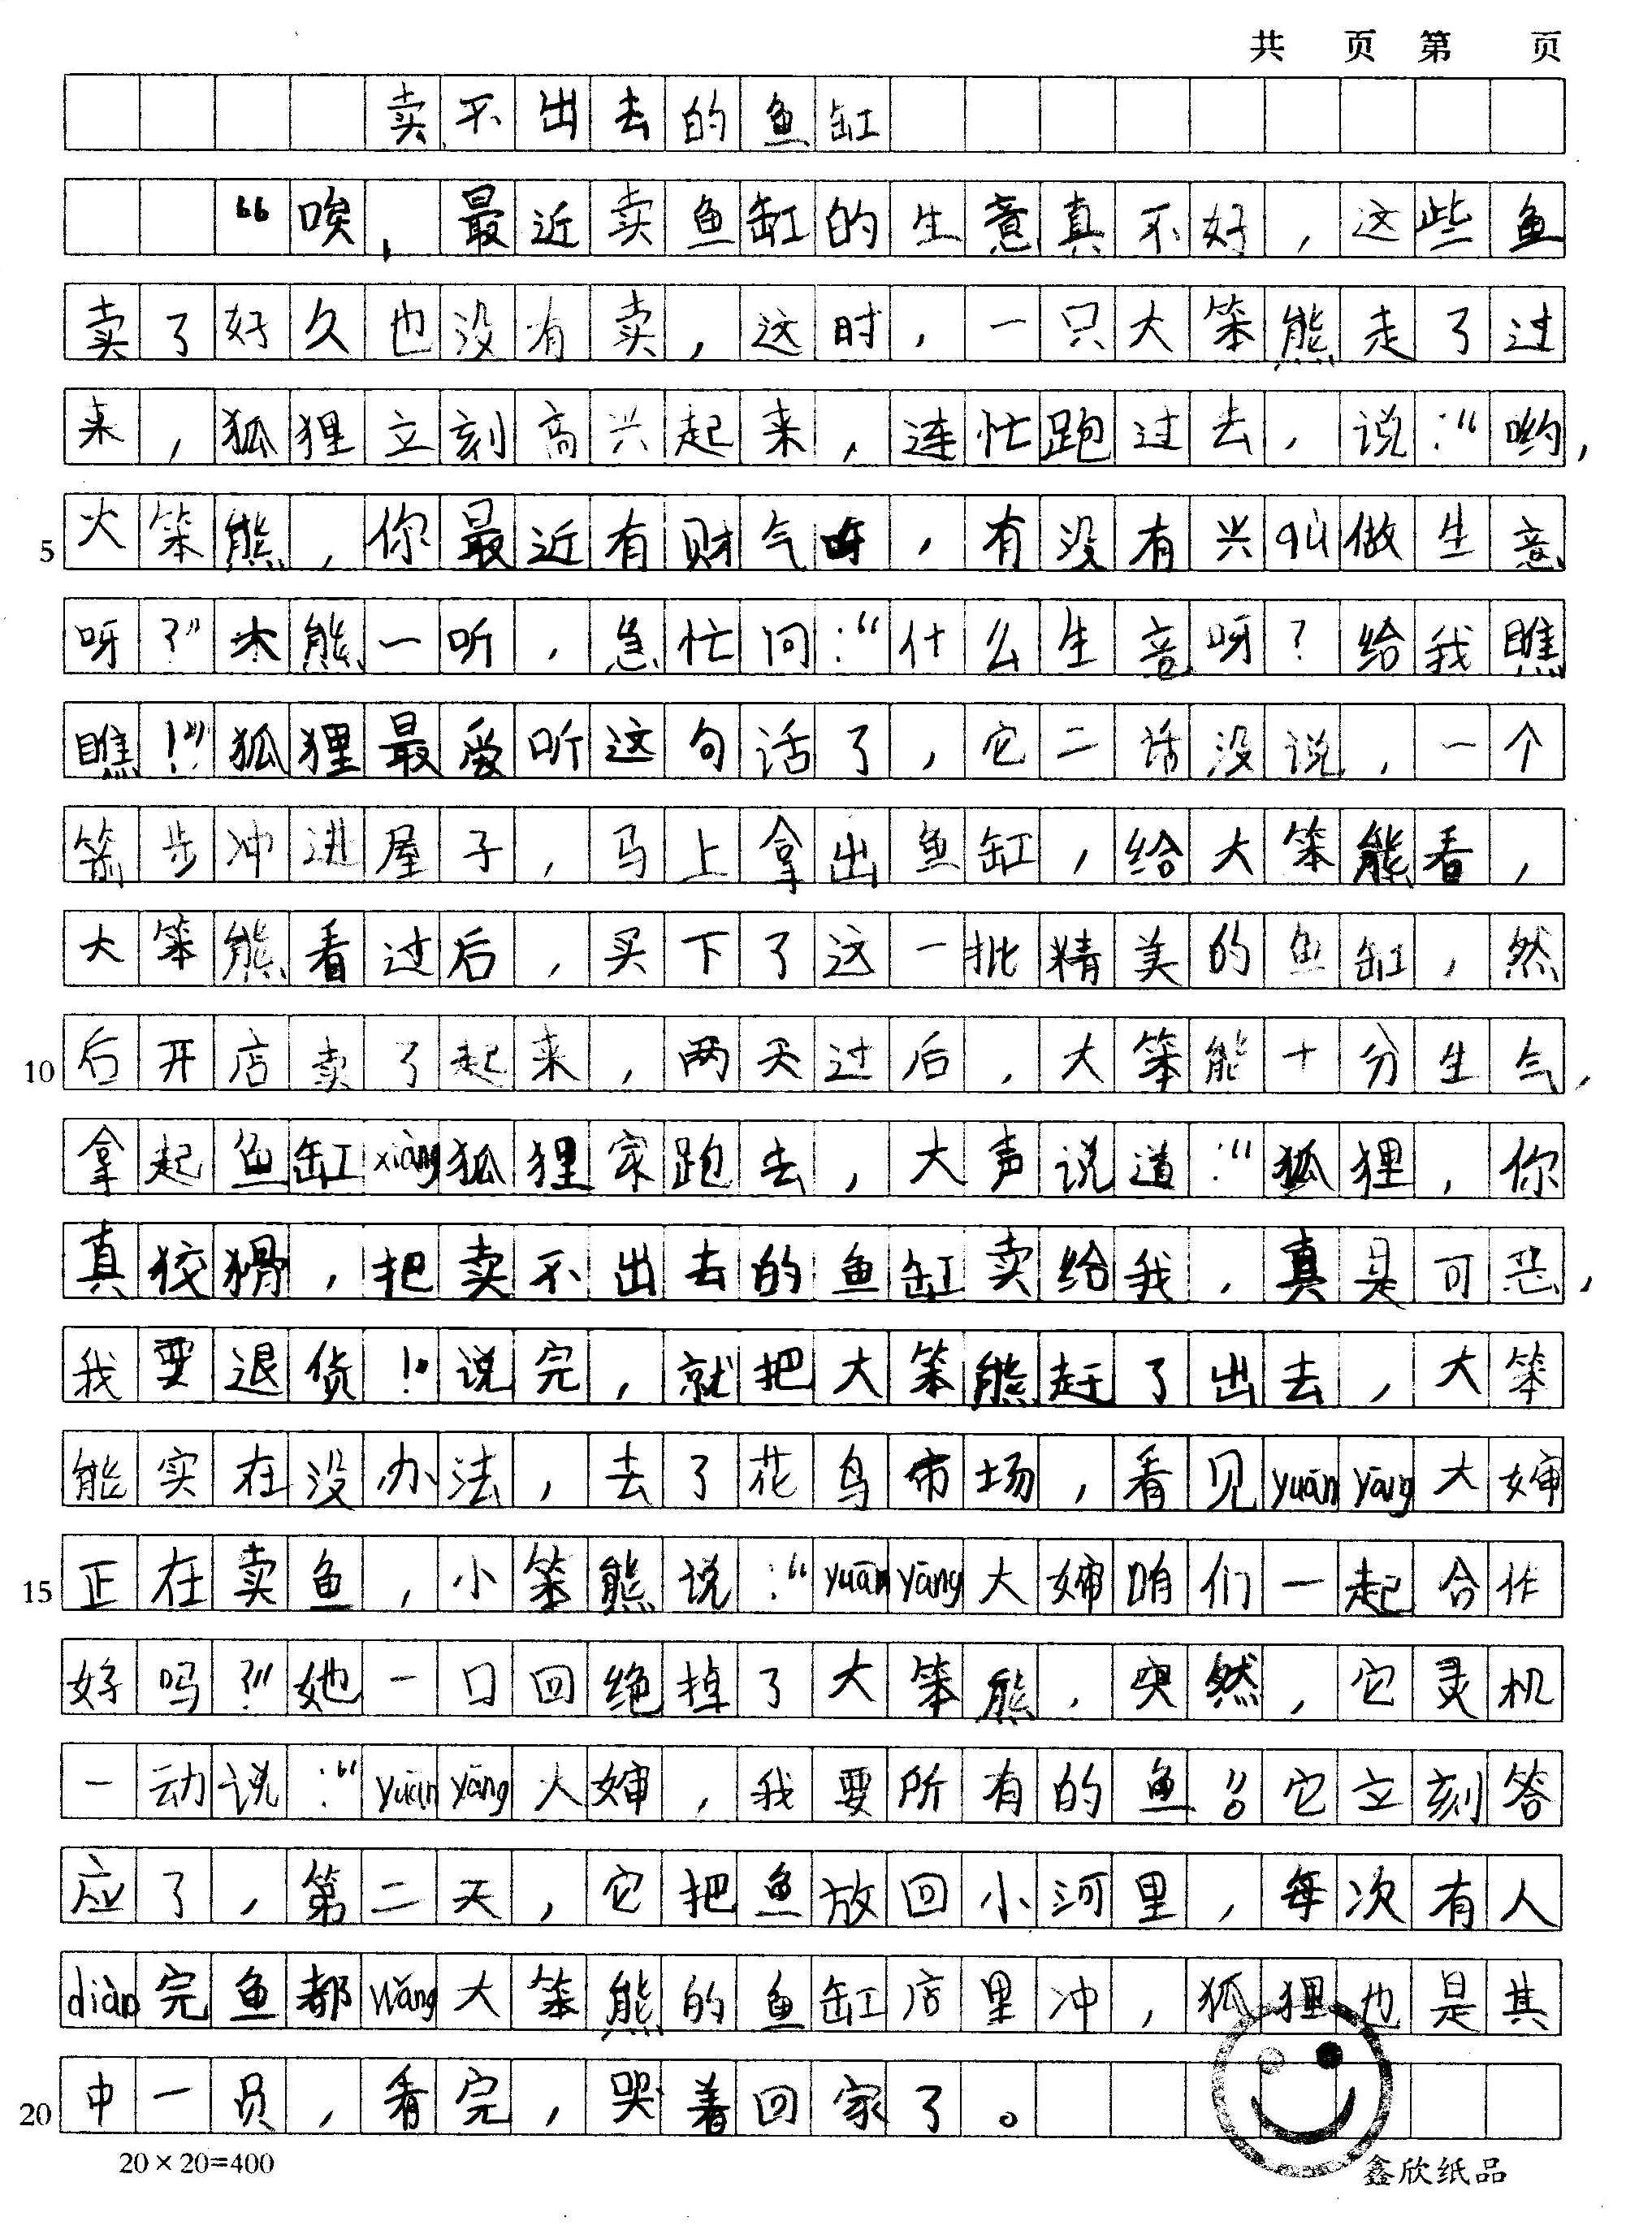 共 页 第 页
卖不出去的鱼缸
“唉，最近卖鱼缸的生意真不好，这些鱼
卖了好久也没有卖，这时，一只大笨熊走了过
来，狐狸立刻高兴起来，连忙跑过去，说：“哟，
大笨熊，你最近有财气呀，有没有兴qù做生意
呀？”大熊一听，急忙问：“什么生意呀？给我瞧
瞧！”狐狸最爱听这句话了，它二话没说，一个
箭步冲进屋子，马上拿出鱼缸，给大笨熊看，
大笨熊看过后，买下了这一批精美的鱼缸，然
10 后开店卖了起来，两天过后，大笨能十分生气，
拿起鱼缸xiàng狐狸家跑去，大声说道：“狐狸，你
真狡猾，把卖不出去的鱼缸卖给我，真是可恶，
我要退货！”说完，就把大笨熊赶了出去，大笨
能实在没办法，去了花鸟市场，看见yuān yāng大婶
15 正在卖鱼，小笨熊说：“yuān yāng大婶咱们一起合作
好吗？”她一口回绝掉了大笨熊，突然，它灵机
一动说：“yuān yāng大婶，我要所有的鱼。”它立刻答
应了，第二天，它把鱼放回小河里，每次有人
diào完鱼都wǎng大笨熊的鱼缸店里冲，狐狸也是其
20 中一员，看完，哭着回家了。
20×20=400 鑫欣纸品